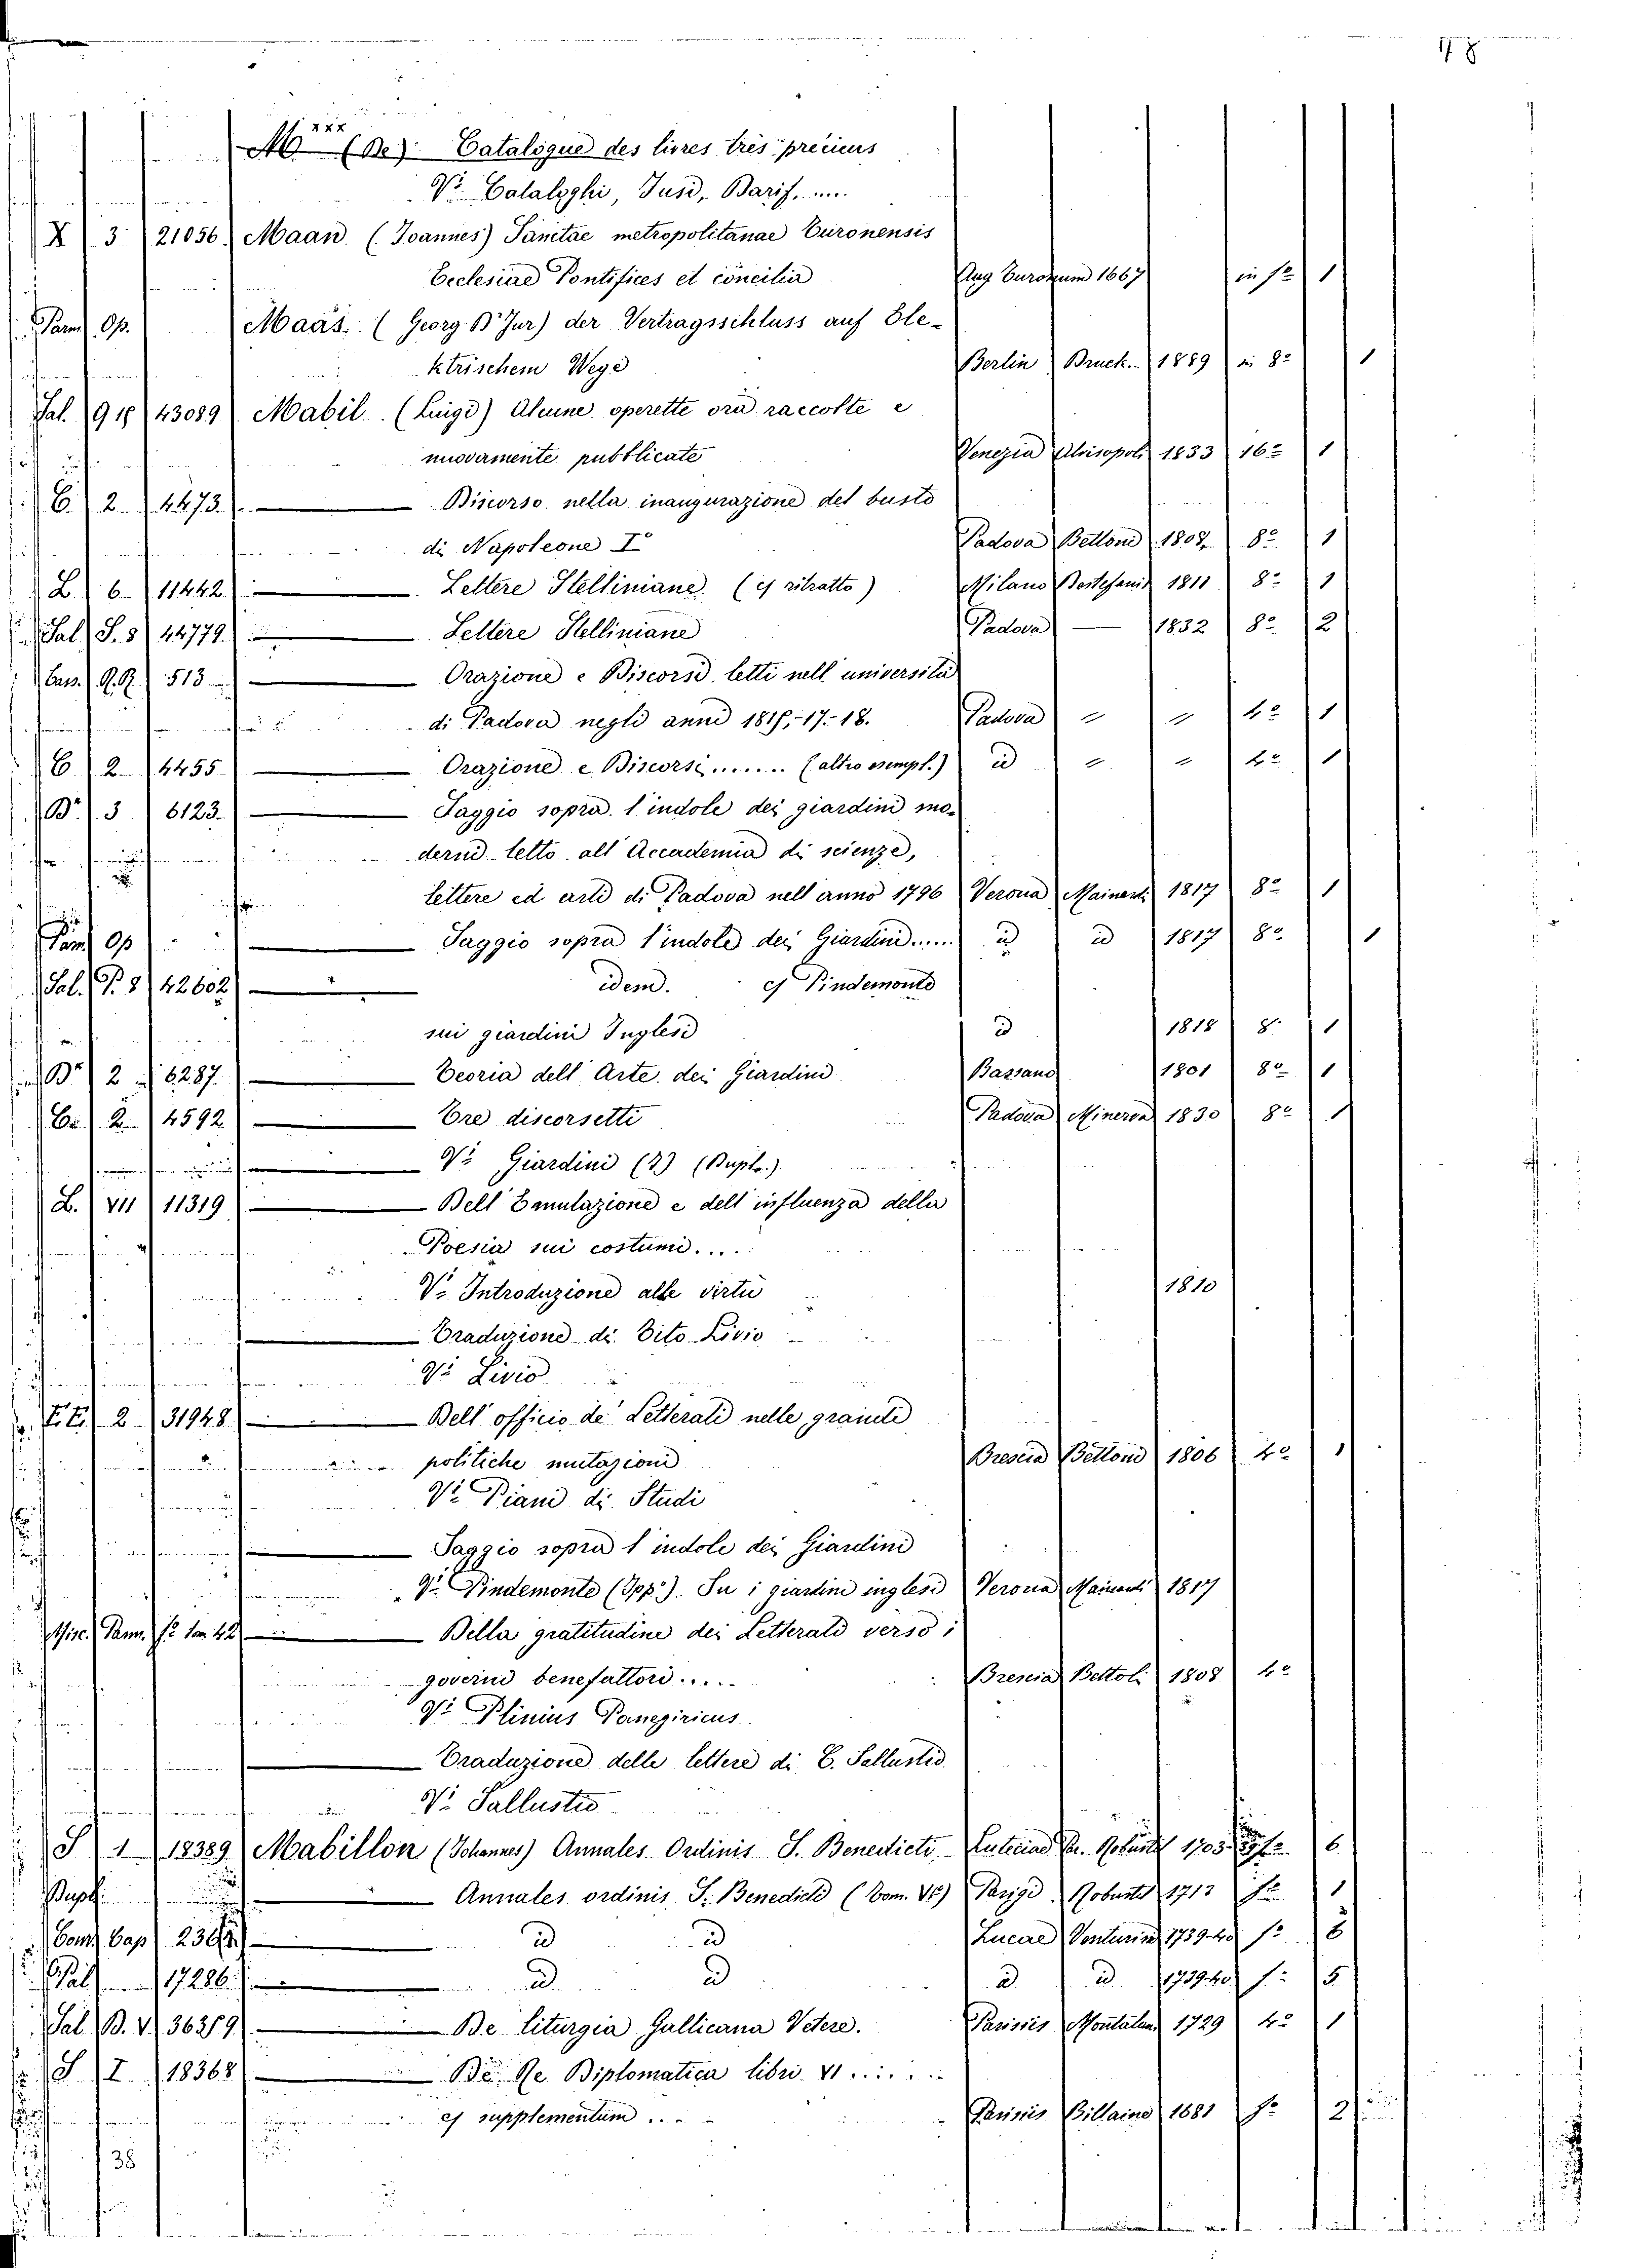 M xxx (De) Catalogue des livres très précieus
V. Cataloghi, Jusd, Barif, ....
X 3 21056 Maan (Joannes) Sanctae metropolitanae Turonensis
Ecclesiae Pontifices et concilia Aug Turonum 1667 in f° 1
Pam Op. Maas (Georg Dr Jur) der Vertragsschluss auf Ele-
ktrischem Wege Berlin Druck. 1889 in 8° 1
Sal. 43089 Mabil (Luigi) Alcune operette ora raccolte e
nuovamente pubblicate Venezia Alvisopoli 1833 16° 1
C. 2 4473 Discorso nella inaugurazione del busto
di Napoleone I° Padova Bettoni 8° 1
L 6 11442 Lettere Stelliniane (cf ritratto) Milano 1811 8° 1
Sal S. 8 44779 Lettere Stelliniane Padova 1832 8° 2
Cass. Q.R. 513 Orazione e Discorsi letti nell università
di Padova negli anni 1816,-17-18. Padova " " 4° 1
C 2 4455 Orazione e Discorsi ....... (altro esempl.) id " " 4° 1
Br 3 6123 Saggio sopra l'indole dei giardini mo-
derni letto all'Accademia di scienze,
lettere ed arti di Padova nell anno 1796 Verona Mainardi 1817 8° 1
Pam Op Saggio sopra l'indole dei Giardini..... id id 1817 8° 1
Sal. P. 8 42602 idem. cf Pindemonte
sui giardini Inglesi id 1818 8° 1
Br 2 6287 Teoria dell'Arte dei Giardini Bassano 1801 8° 1
C. 2 4592 Tre discorsetti Padova Minerva 1830 8° 1
V° Giardini (I) (Dupl.)
L. VII 11319 Dell'Emulazione e dell'influenza della
Poesia sui costumi....
V° Introduzione alle virtù 1810
Traduzione di Tito Livio
V° Livio
2 31948 Dell'officio de' Letterati nelle grandi
politiche mutazioni Brescia Bettoni 1806 4° 1
V° Piani di Studi
Saggio sopra l'indole dei Giardini
V° Pindemonte (Ipp°). Su i giardini inglesi Verona Mainardi 1817
Misc. Pam. f° tom 42 Della gratitudine dei Letterati verso i
governi benefattori ..... Brescia Bettoli 1808 4°
V° Plinius Panegiricus
Traduzione delle lettere di C. Sallustio
V° Sallustio
S 1 18389 Mabillon (Johannes) Annales Ordinis S. Benedicti Luteciae Robustel 1703 f° 6
Dupl. Annales ordinis S. Benedicti (Tom. VI) Parigi Robustel 1713 f° 1
Com Cap id id Lucae Venturini 1739-40 f° 6
Sal 17286 id id id id 1739-40 f° 5
Sal B. V. 36219 De liturgia Gallicana Vetere. Parisiis Montalan 1729 4° 1
S I 18368 De Re Diplomatica libri VI ......
cf supplementum ... Parisiis Billaine 1681 f° 2
38